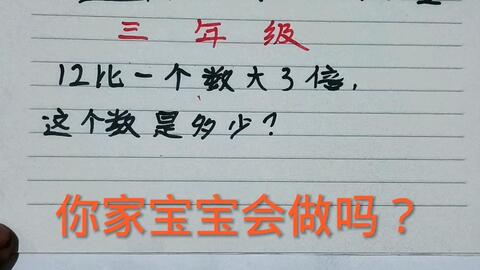 三年级
12比一个数大3倍,
这个数是多少?
你家宝宝会做吗？